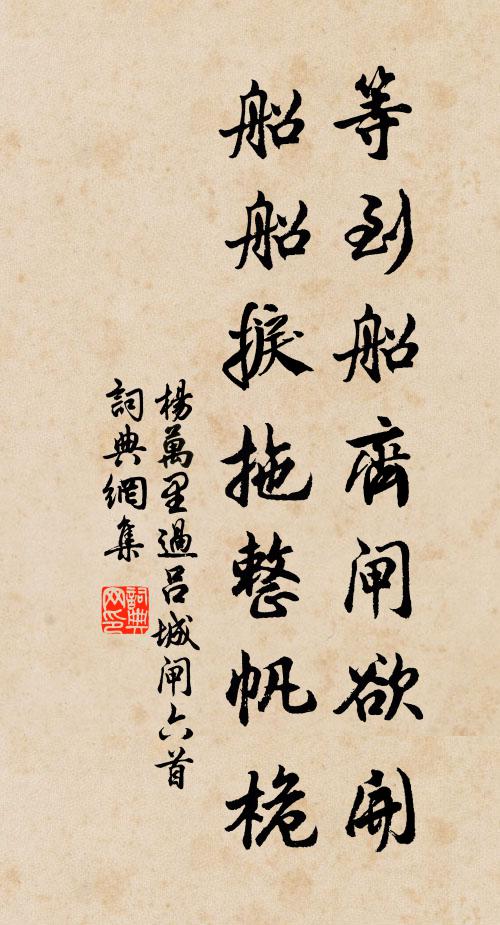 等到船齊閘欲開
船船捩拖整帆桅
楊萬里過呂城閘六首
詞典網集
詞典网印